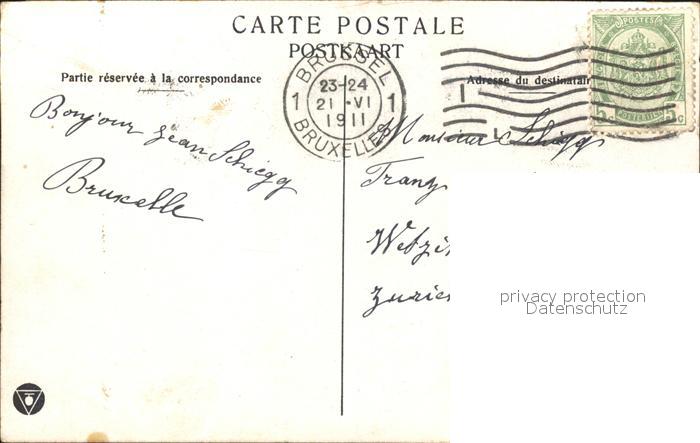 CARTE POSTALE
POSTKAART
Partie réservée à la correspondance
Adresse du destinatair
BRUSSEL
1 23-24 1
21 · VI
1911
BRUXELLES
POSTES
5c POSTERIJEN 5c
Bonjour Jean Schiegg
Bruxelle
Monsieur Schiegg
Franz
Wetzi
Zuric
privacy protection
Datenschutz